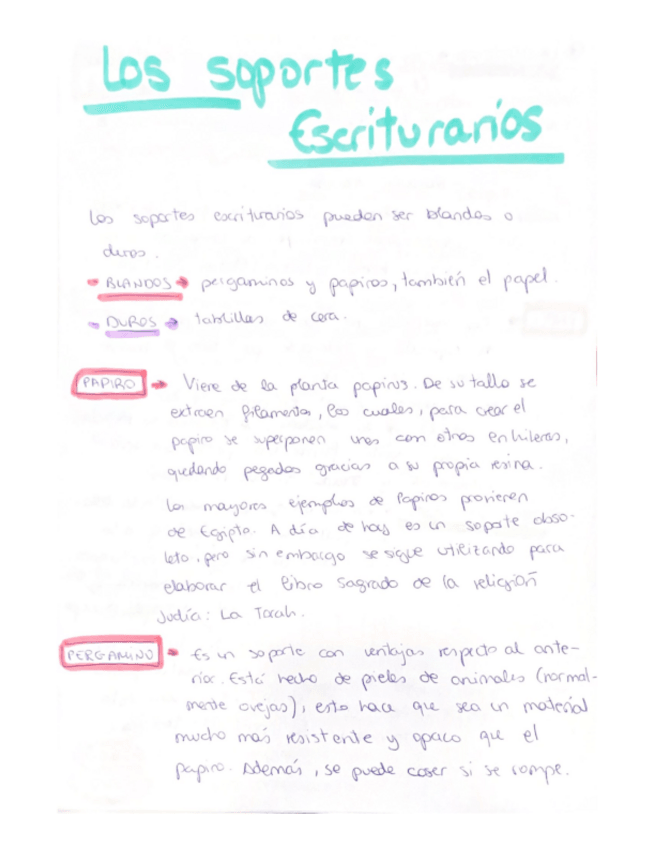 Los soportes
Escriturarios
Los soportes escriturarios pueden ser blandos o
duros.
- BLANDOS → pergaminos y papiros, también el papel.
- DUROS → tablillas de cera.
PAPIRO → Viene de la planta papirus. De su tallo se
extraen filamentos, los cuales, para crear el
papiro se superponen unos con otros en hileras,
quedando pegados gracias a su propia resina.
Los mayores ejemplos de Papiros provienen
de Egipto. A día de hoy es un soporte obso-
leto, pero sin embargo se sigue utilizando para
elaborar el libro sagrado de la religión
Judía: La Torah.
PERGAMINO → Es un soporte con ventajas respecto al ante-
rior. Está hecho de pieles de animales (normal-
mente ovejas), esto hace que sea un material
mucho más resistente y opaco que el
papiro. Además, se puede coser si se rompe.